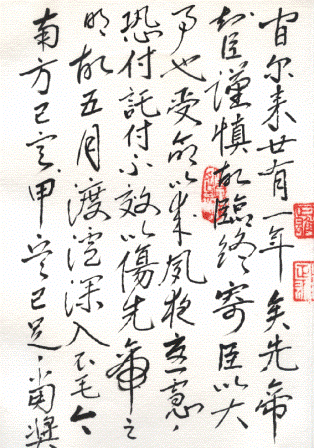 间尔来廿有一年矣先帝
知臣謹慎故臨終寄臣以大
事也受命以来夙夜憂慮
恐付託付不效以傷先帝之
明故五月渡瀘深入不毛今
南方已定甲兵已足當獎